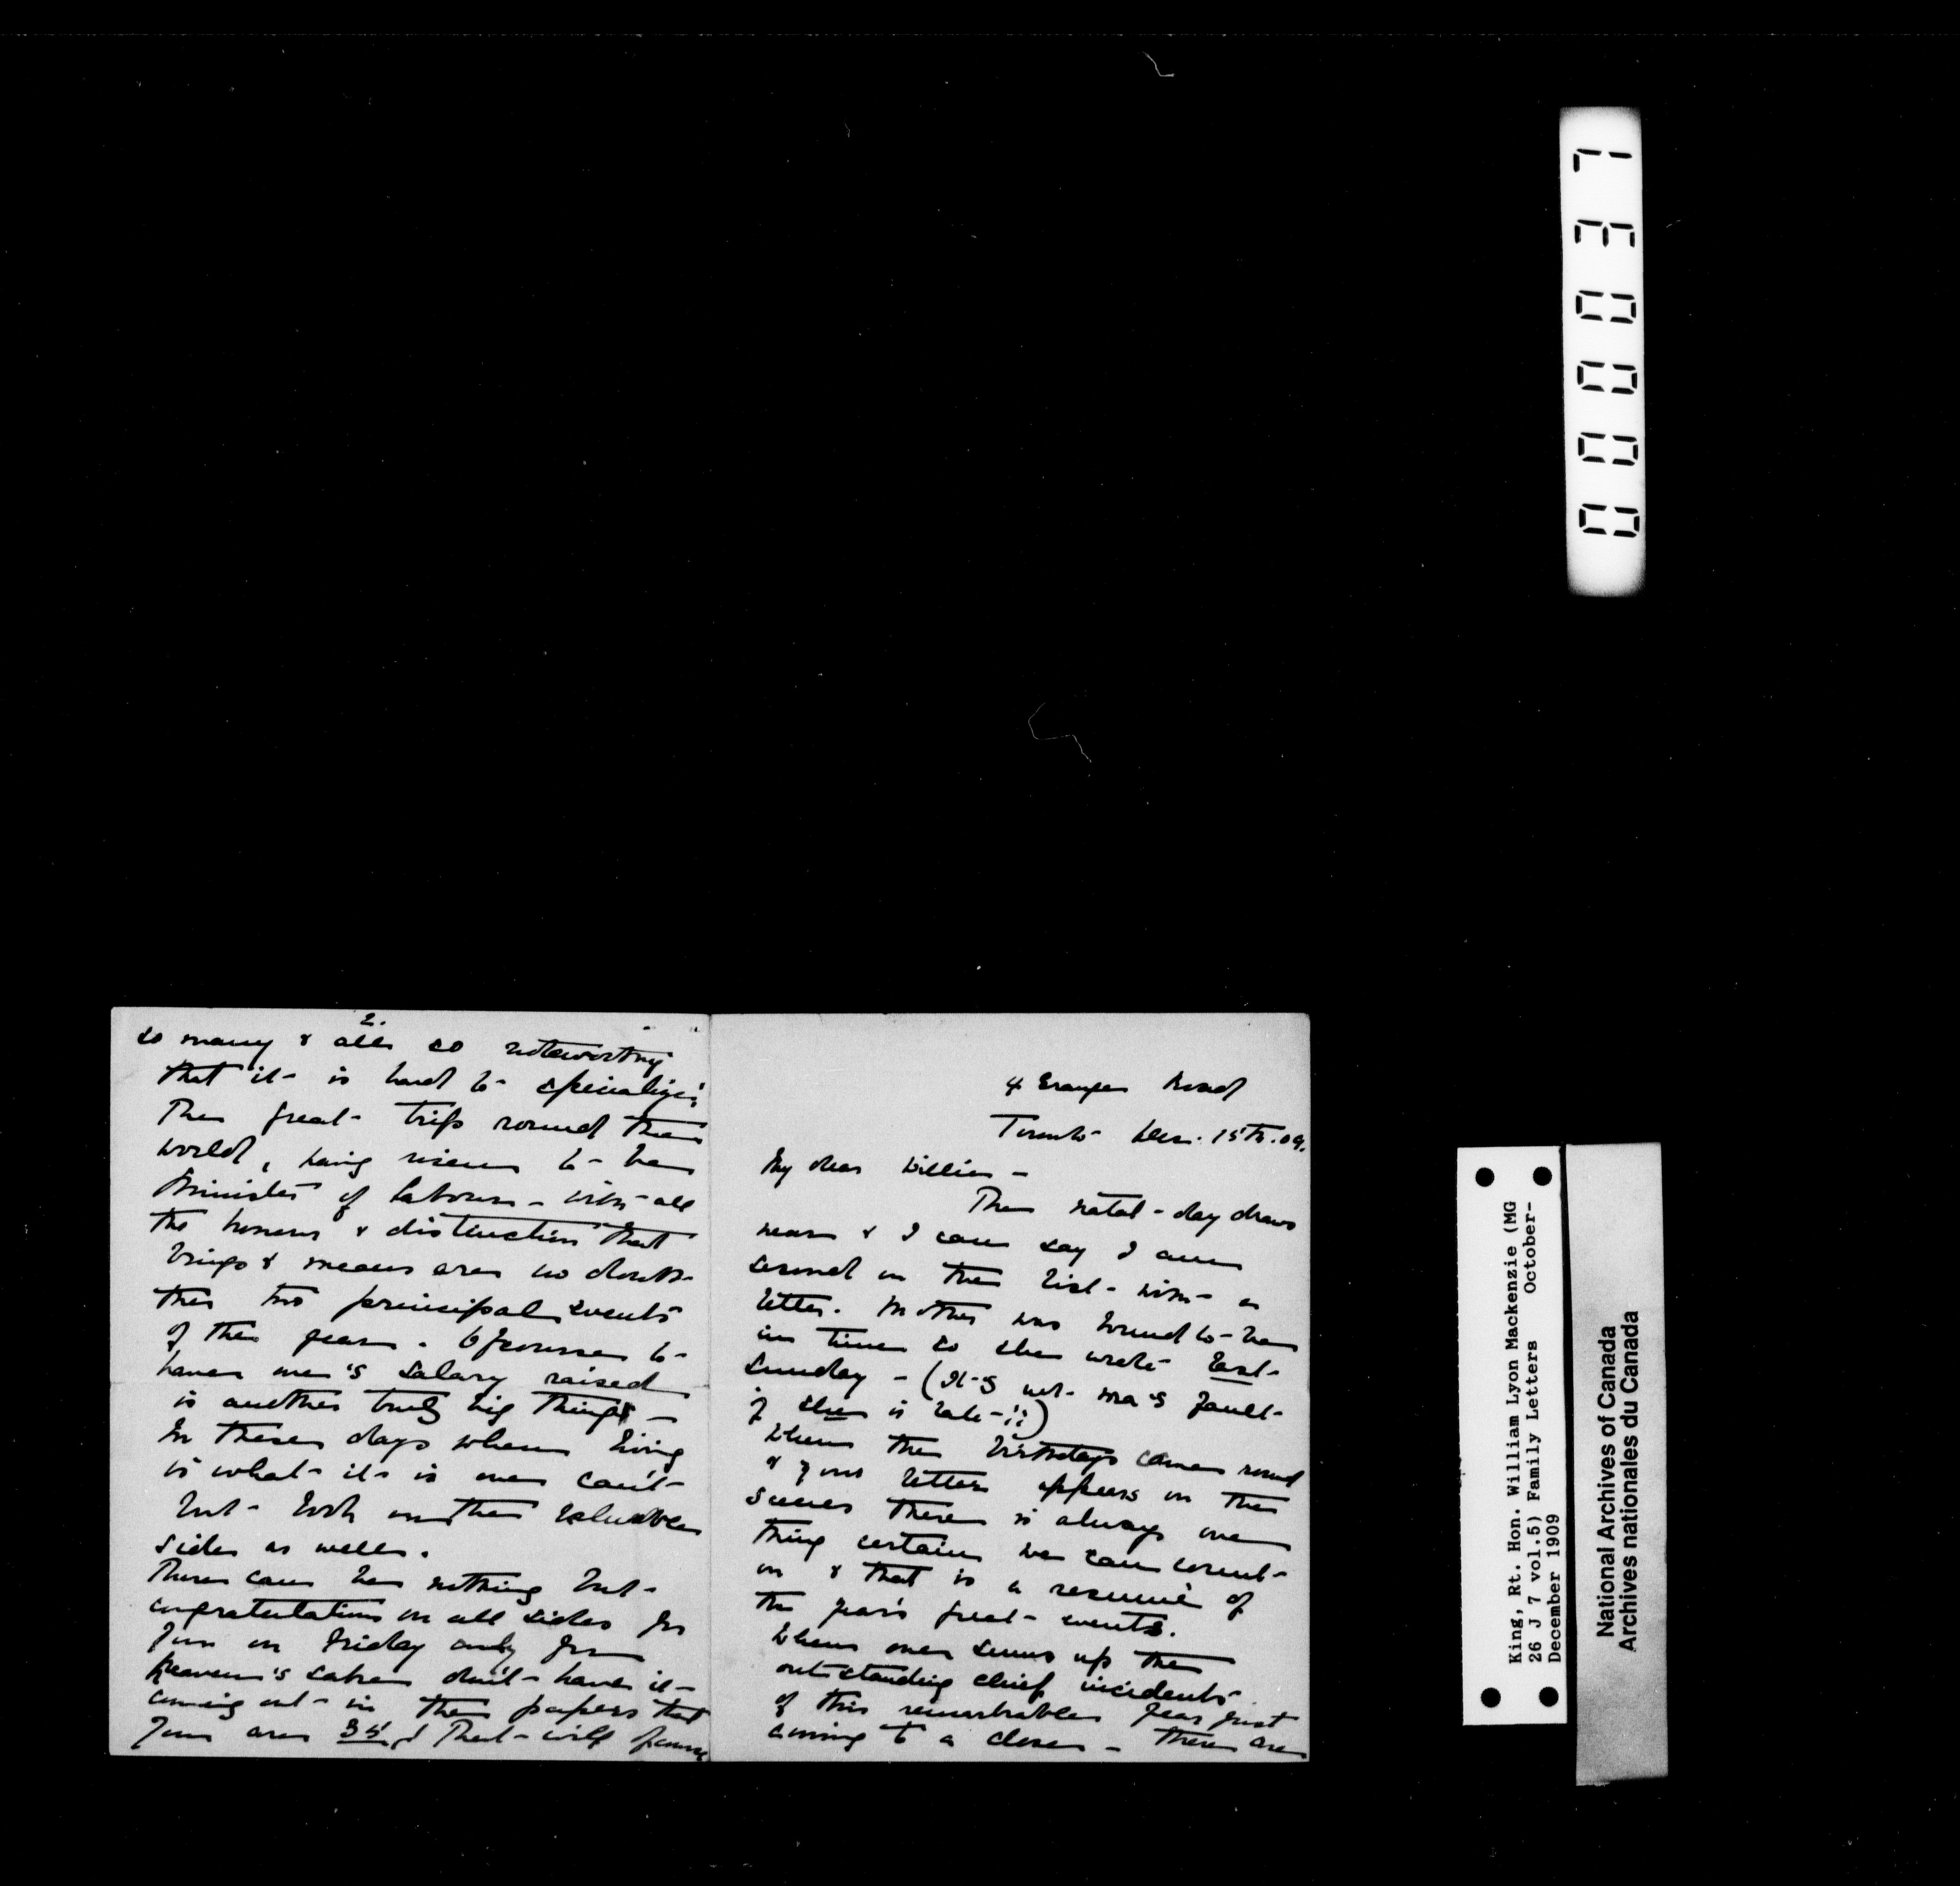 4 Grange Road
Toronto Dec. 15th. 09.
My dear Willie –
The natal-day draws
near & I can say I am
second on the list with a
letter. Mother was bound to be
in time so she wrote last
Sunday – (It's not ma's fault
if she is late !!)
When the birthdays come round
& your letter appears on the
scenes there is always one
thing certain we can count
on & that is a resumé of
the year's great events.
When one sums up the
outstanding chief incidents
of this remarkable year just
coming to a close – there are
2.
so many & all so noteworthy
that it is hard to specialize.
The great trip round the
world, having risen to be
Minister of Labour – with all
the honours & distinction that
brings & means are no doubt
the two principal events
of the year. Of course to
have one's salary raised
is another truly big thing –
In these days when living
is what it is one can't
but look on the valuable
side as well.
There can be nothing but
congratulations on all sides for
you on Friday only for
heaven's sake don't have it
coming out in the papers that
you are 35, that will
000031
King, Rt. Hon. William Lyon Mackenzie (MG
26 J 7 vol.5) Family Letters October-
December 1909
National Archives of Canada
Archives nationales du Canada